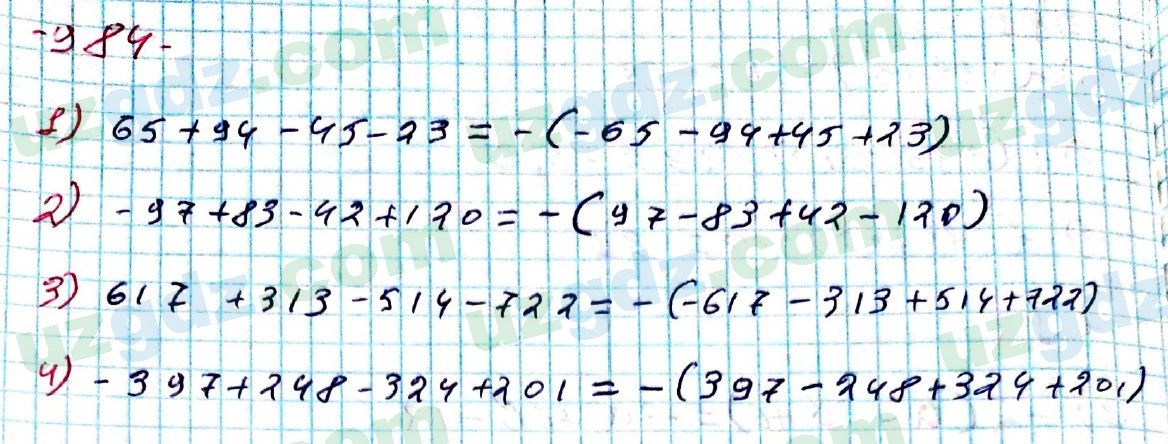 -984-
1) 65+94-45-23=-(-65-94+45+23)
2) -97+83-42+120=-(97-83+42-120)
3) 617+313-514-722=-(-617-313+514+722)
4) -397+248-324+201=-(397-248+324+201)
uzgdz.com